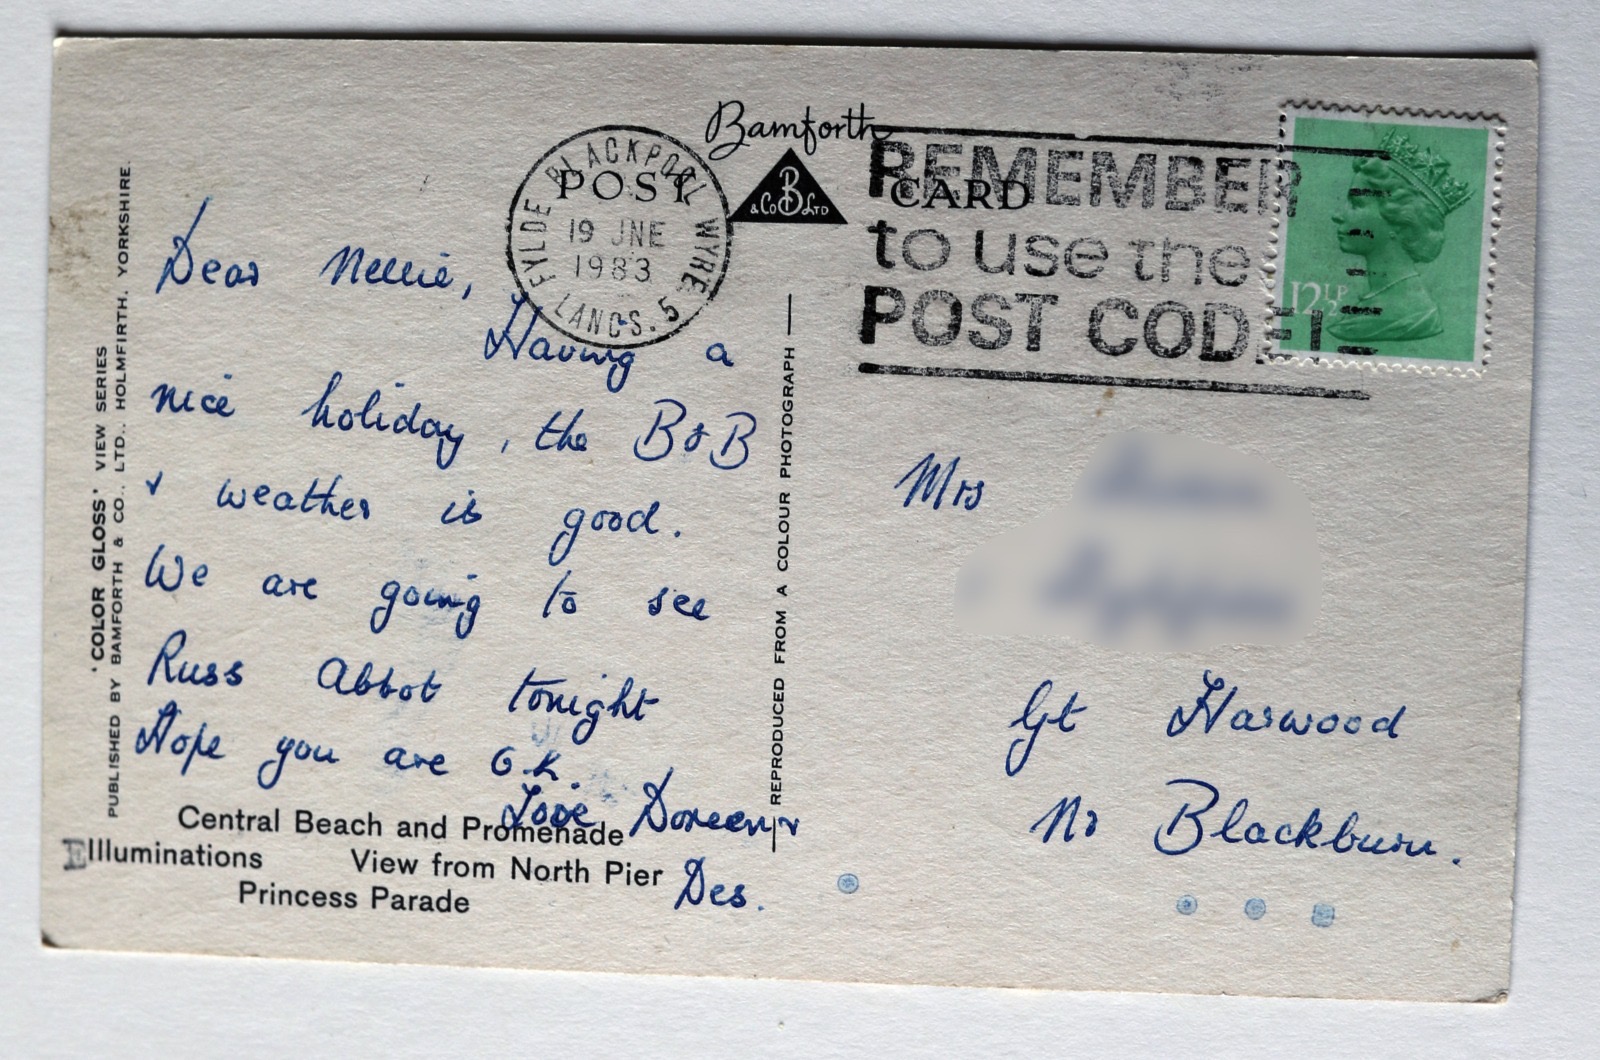 Bamforth
POST CARD
& Co B LTD
BLACKPOOL
FYLDE WYRE
19 JNE
1983
LANCS. 5
REMEMBER
to use the
POST CODE!
12½P
Dear Nellie,
Having a
nice holiday, the B&B
& weather is good.
We are going to see
Russ Abbot tonight
Hope you are O.K.
Love Doreen &
Des.
Central Beach and Promenade
Illuminations View from North Pier
Princess Parade
'COLOR GLOSS' VIEW SERIES
PUBLISHED BY BAMFORTH & CO., LTD., HOLMFIRTH, YORKSHIRE.
REPRODUCED FROM A COLOUR PHOTOGRAPH
Mrs
Gt Harwood
Nr Blackburn.